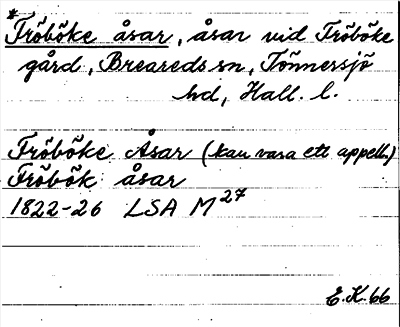 *
Fröböke åsar, åsar vid Fröböke
gård, Breareds sn, Tönnersjö
hd, Hall. l.
Fröböke Åsar (kan vara ett appell.)
Fröbök åsar
1822-26 LSA M27
E.K. 66